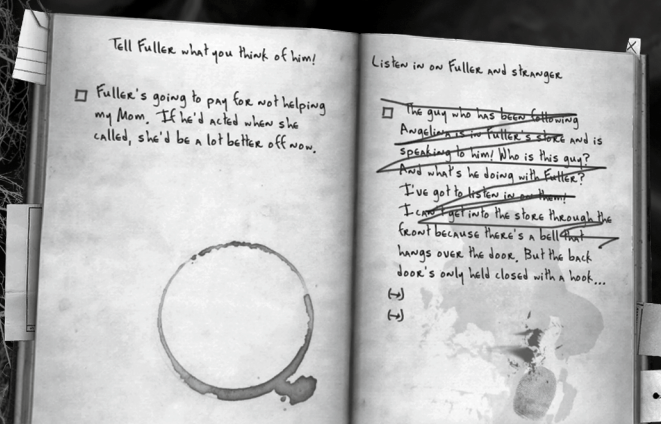 Tell Fuller what you think of him!
Fuller's going to pay for not helping
my Mom. If he'd acted when she
called, she'd be a lot better off now.
Listen in on Fuller and stranger
The guy who has been following
Angelina is in Fuller's store and is
speaking to him! Who is this guy?
And what's he doing with Fuller?
I've got to listen in on them!
I can't get into the store through the
front because there's a bell that
hangs over the door. But the back
door's only held closed with a hook...
(→)
(→)